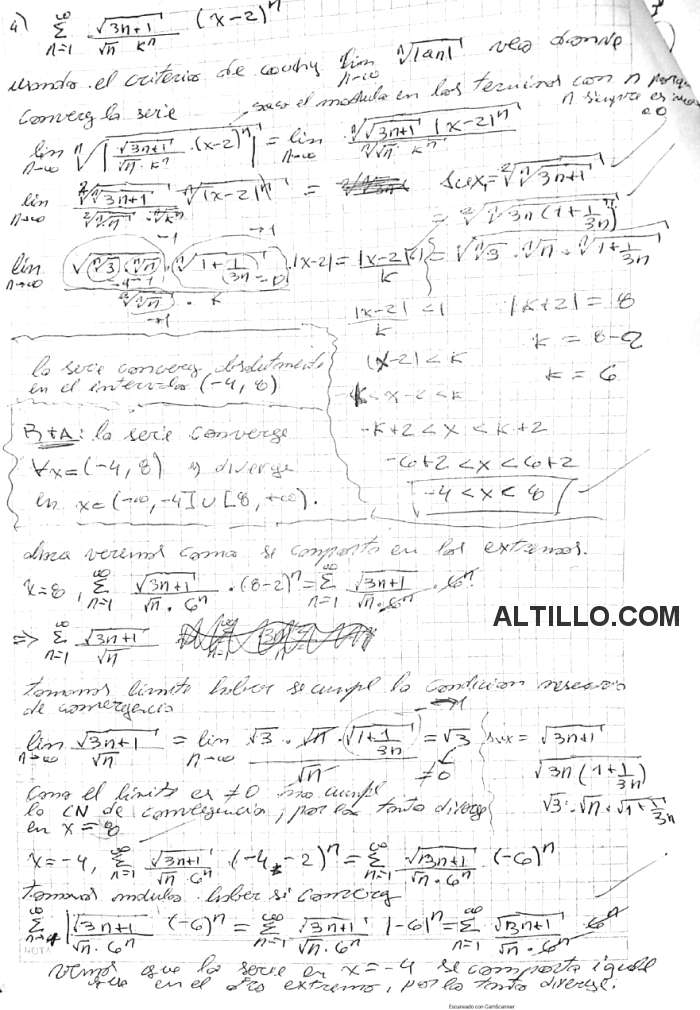 4) ∞ Σ n=1 √3n+1 / √n kⁿ (x-2)ⁿ
usando el criterio de cauchy lim n→∞ ⁿ√|an| veo donde
converg la serie saco el modulo en los terminos con n porque
n siempre es
lim n→∞ ⁿ√|√3n+1 / √n · kⁿ · (x-2)ⁿ| = lim n→∞ ⁿ√√3n+1 |x-2|ⁿ / ⁿ√√n · kⁿ
lim n→∞ ⁿ√√3n+1 / ⁿ√√n · ⁿ√kⁿ ⁿ√|(x-2)|ⁿ = aux= ⁿ√√3n+1
= ⁿ√√3n(1+1/3n)
lim n→∞ √ⁿ√3 · ⁿ√n · ⁿ√1+1/3n · |x-2| / ⁿ√√n · k = |x-2| / k <1 = √ⁿ√3 · √ⁿ√n · √ⁿ√1+1/3n
|x-2| / k <1 |k+2| = 8
k = 8-2
|x-2| < k k = 6
-k < x-2 < k
-k+2 < x < k+2
-6+2 < x < 6+2
-4 < x < 8
la serie converg absolutamente
en el intervalo (-4, 8)
RTA: la serie converge
∀x=(-4, 8) y diverge
en x=(-∞, -4] ∪ [8, +∞).
ahora veremos como se comporta en los extremos.
x=8, ∞ Σ n=1 √3n+1 / √n · 6ⁿ · (8-2)ⁿ = ∞ Σ n=1 √3n+1 / √n · 6ⁿ · 6ⁿ
⇒ ∞ Σ n=1 √3n+1 / √n
ALTILLO.COM
tomamos limite haber se cumpl la condicion necesaria
de convergencia
lim n→∞ √3n+1 / √n = lim n→∞ √3 · √n · √1+1/3n / √n = √3 ≠0 aux = √3n+1
√3n(1+1/3n)
√3 · √n · √1+1/3n
Como el limite es ≠0 no cumpl
la CN de convergencia, por lo tanto diverge
en x = 8
x=-4, ∞ Σ n=1 √3n+1 / √n 6ⁿ · (-4-2)ⁿ = ∞ Σ n=1 √3n+1 / √n · 6ⁿ · (-6)ⁿ
tomamos modulo haber si converg
∞ Σ n=1 |√3n+1 / √n · 6ⁿ (-6)ⁿ = ∞ Σ n=1 √3n+1 / √n · 6ⁿ |-6|ⁿ = ∞ Σ n=1 √3n+1 / √n · 6ⁿ · 6ⁿ
vemos que la serie en x=-4 se comporta igual
que en el otro extremo, por lo tanto diverge.
Escaneado con CamScanner